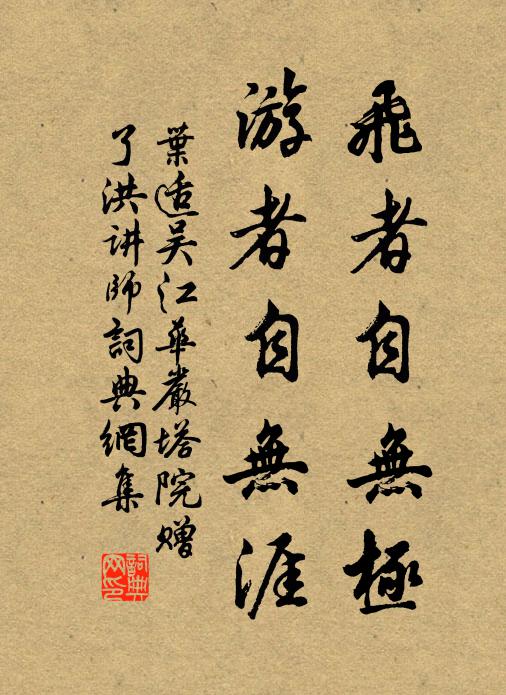 飛者自無極
游者自無涯
葉適吴江華嚴塔院贈
了洪讲師詞典網集
詞典
网印